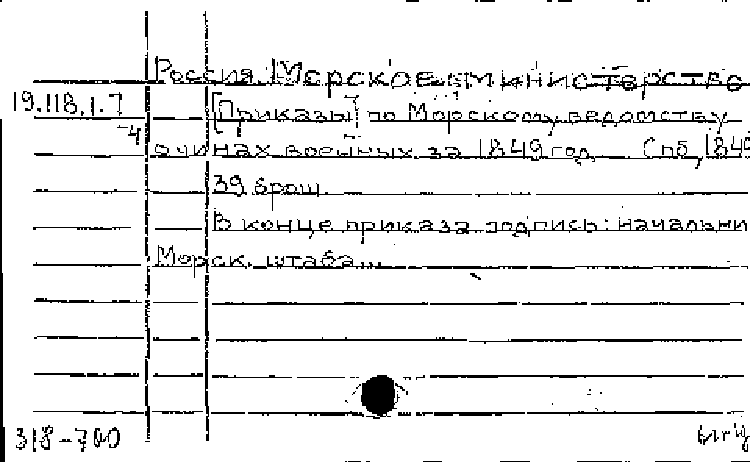 Россия. Морское министерство
19.118.1.7
[Приказы] по Морскому ведомству
-4
о чинах военных за 1849 год Спб, 1849
39 брош.
В конце приказа подпись: начальни
Морск. штаба...
318-700